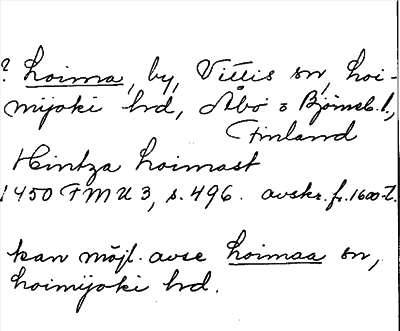 ? Loima, by, Vittis sn, Loi-
mijoki hd, Åbo o Björneb. l.,
Finland
Hintza Loimast
1450 FMU 3, s. 496. avskr. fr. 1600-t.
kan möjl. avse Loimaa sn,
Loimijoki hd.